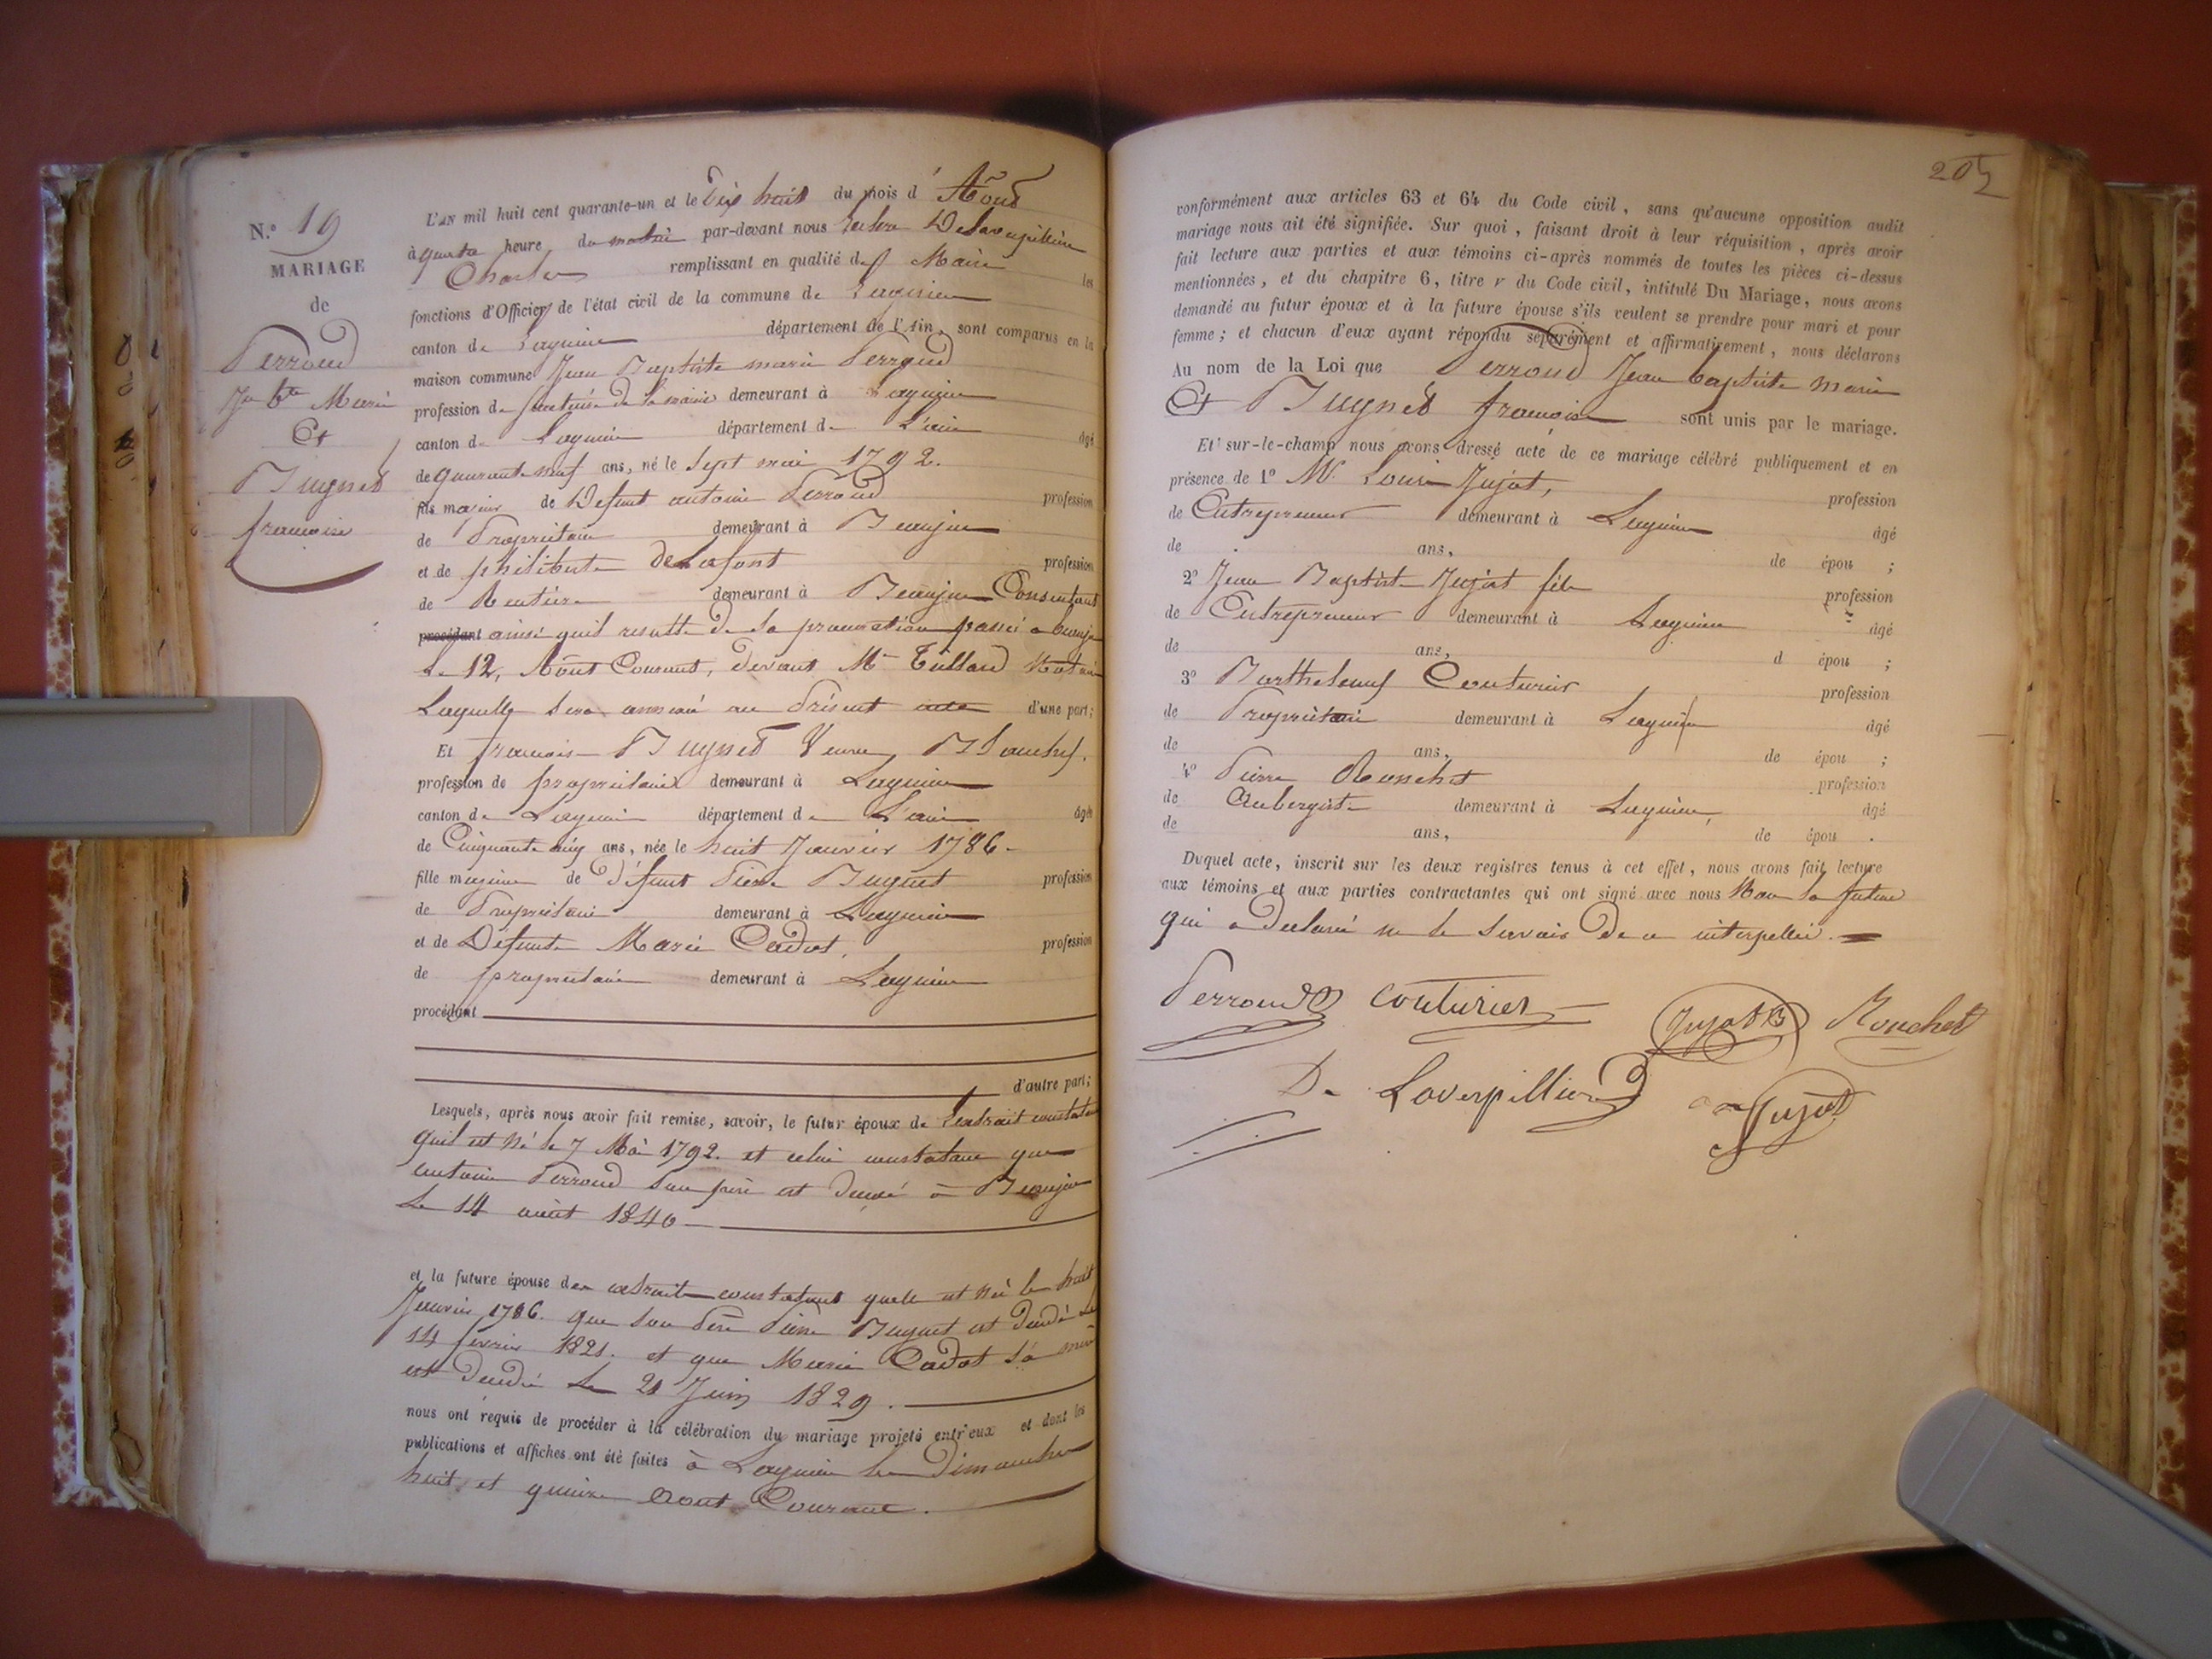 N.º 19
MARIAGE
de
Perroud
Jn Bte Marie
Et
Bugnet
francoise
L'AN mil huit cent quarante-un et le Dix huit du mois d'Août
à quatre heure du matin par-devant nous Delaverpillière
Charles remplissant en qualité de Maire les
fonctions d'Officier de l'état civil de la commune de Lagnieu
canton de Lagnieu département de l'Ain, sont comparus en la
maison commune Jean Baptiste marie Perroud
profession de secretaire de la mairie demeurant à Lagnieu
canton de Lagnieu département de L'ain âgé
de quarante neuf ans, né le sept mai 1792.
fils majeur de Defunt antoine Perroud profession
de Propriétaire demeurant à Beaujeu
et de philiberte delafont profession
de Rentière demeurant à Beaujeu Consentant
procédant ainsi quil resulte de sa procuration passée a beaujeu
Le 12, Août Courant, devant Me Notaire
Laquelle sera annexée au Présent acte d'une part;
Et francoise Bugnet Veuve
profession de propriétaire demeurant à Lagnieu
canton de Lagnieu département de L'ain âgée
de Cinquante cinq ans, née le huit Janvier 1786
fille majeure de Défunt Pierre Bugnet profession
de Propriétaire demeurant à Lagnieu
et de Défunte Marie Cadot, profession
de propriétaire demeurant à Lagnieu
procédant
d'autre part;
Lesquels, après nous avoir fait remise, savoir, le futur époux de Lextrait constatant
quil est Né le 7 Mai 1792. et celui constatant que
antoine Perroud son père est décédé à Beaujeu
Le 14 août 1840
et la future épouse des extraits constatant quelle est Née le huit
Janvier 1786. que son Père Pierre Bugnet est décédé le
14 fevrier 1821. et que Marie Cadot sa mère
est décédée Le 21 Juin 1829.
nous ont requis de procéder à la célébration du mariage projeté entr'eux et dont les
publications et affiches ont été faites à Lagnieu les Dimanches
huit et quinze Aout Courant.
205
conformément aux articles 63 et 64 du Code civil, sans qu'aucune opposition audit
mariage nous ait été signifiée. Sur quoi, faisant droit à leur réquisition, après avoir
fait lecture aux parties et aux témoins ci-après nommés de toutes les pièces ci-dessus
mentionnées, et du chapitre 6, titre v du Code civil, intitulé Du Mariage, nous avons
demandé au futur époux et à la future épouse s'ils veulent se prendre pour mari et pour
femme; et chacun d'eux ayant répondu séparément et affirmativement, nous déclarons
Au nom de la Loi que Perroud Jean baptiste marie
Et Bugnet francoise sont unis par le mariage.
Et sur-le-champ nous avons dressé acte de ce mariage célébré publiquement et en
présence de 1º M. Louis Jujat, profession
de Entrepreneur demeurant à Lagnieu âgé
de ans, de épou ;
2º Jean Baptiste Jujat fils profession
de Entrepreneur demeurant à Lagnieu âgé
de ans, d épou ;
3º Barthelemy Couturier profession
de Propriétaire demeurant à Lagnieu âgé
de ans, de épou ;
4º Pierre Ronchet profession
de Aubergiste demeurant à Lagnieu, âgé
de ans, de épou .
Duquel acte, inscrit sur les deux registres tenus à cet effet, nous avons fait lecture
aux témoins et aux parties contractantes qui ont signé avec nous Non la future
qui a declaré ne le savoir De ce interpellée.
Perroud couturier Jujat B Ronchet
De Laverpillière Jujat